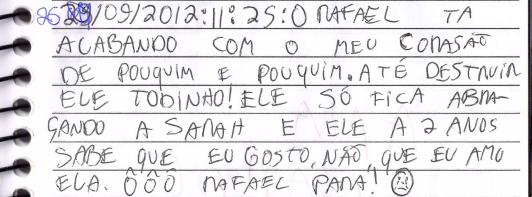 25/09/2012:11:25:O RAFAEL TA
ACABANDO COM O MEU CORASÃO
DE POUQUIM E POUQUIM. ATÉ DESTRUIR
ELE TODINHO! ELE SÓ FICA ABRA-
ÇANDO A SARAH E ELE A 2 ANOS
SABE QUE EU GOSTO, NÃO, QUE EU AMO
ELA. Ô Ô Ô RAFAEL PARA!